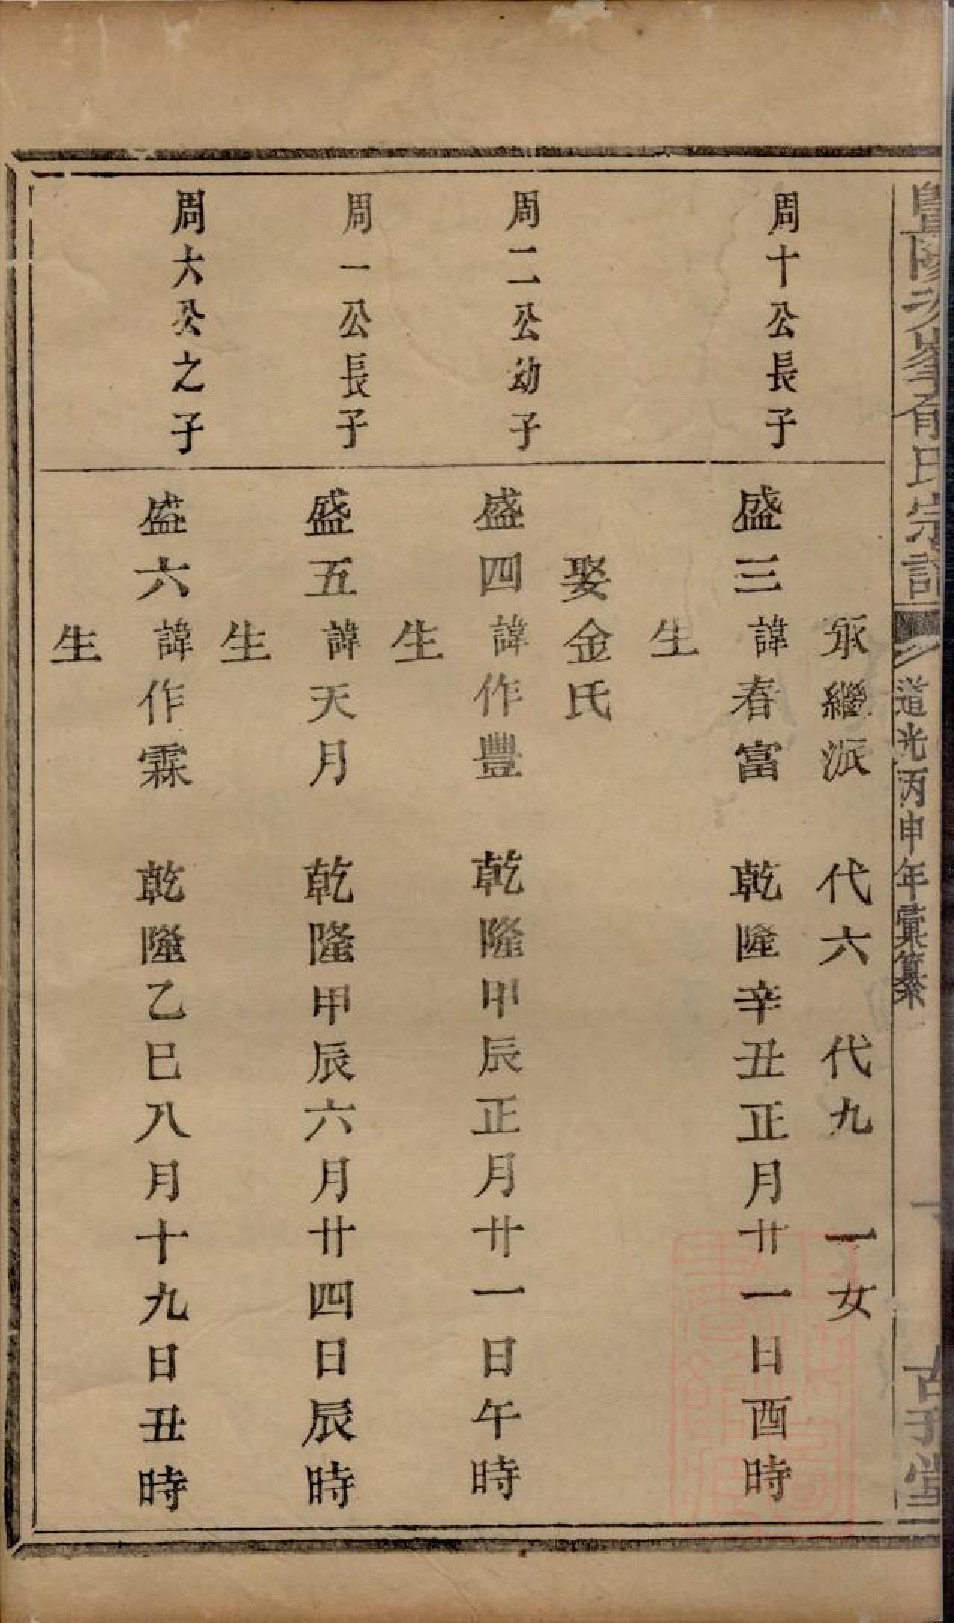 暨陽次峯俞氏宗譜
道光丙申年彙纂
古孝堂
派繼派 代六 代九 一女
周十公長子
盛三諱春富 乾隆辛丑正月廿一日酉時
生
娶金氏
周二公幼子
盛四諱作豐 乾隆甲辰正月廿一日午時
生
周一公長子
盛五諱天月 乾隆甲辰六月廿四日辰時
生
周六公之子
盛六諱作霖 乾隆乙巳八月十九日丑時
生